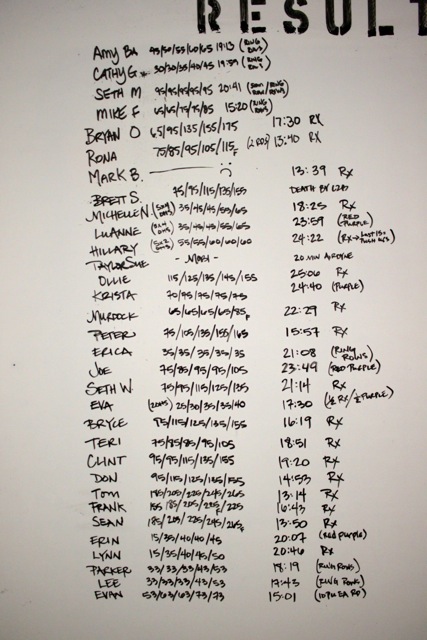 RESULT
Amy BA 45/50/55/60/65 19:13 (RING ROWS)
CATHY G 30/30/35/40/45 19:59 (RING ROWS)
SETH M 95/95/95/95/95 20:41
MIKE F 65/65/75/75/85 15:20 (RING ROWS)
BRYAN O 65/95/135/155/175 17:30 RX
RONA 75/85/95/105/115F 13:40 RX
MARK B. 13:39 RX
BRETT S. 75/95/115/135/155 DEATH BY
MICHELLE N. 35/45/45/55/65 18:25 RX
LUANNE 35/45/45/55/65 23:59 (RED PURPLE)
HILLARY 55/55/60/60/60 24:22
TAYLOR SUE - MOBI - 20 MIN AIRDYNE
OLLIE 115/125/135/145/155 25:06 RX
KRISTA 70/75/75/75/75 24:40 (PURPLE)
MURDOCK 65/65/65/65/85F 22:29 RX
PETER 75/105/135/155/165 15:57 RX
ERICA 35/35/35/35/35 21:08 (RING ROWS)
JOE 75/85/95/95/105 23:49 (RED PURPLE)
SETH W. 75/95/115/125/135 21:14 RX
EVA 25/30/35/35/40 17:30 (½ RX/½ PURPLE)
BRYCE 95/115/125/135/155 16:19 RX
TERI 75/85/85/95/105 18:51 RX
CLINT 95/95/115/135/155 19:20 RX
DON 95/115/125/135/155 14:53 RX
TOM 185/205/225/245/265 13:14 RX
FRANK 185/205/225 16:43 RX
SEAN 185/205/225/245/265F 13:50 RX
ERIN 15/35/40/40/45 20:07 (Red purple)
LYNN 15/35/40/45/50 20:46 RX
PARKER 33/33/33/43/53 18:19 (RING ROWS)
LEE 33/33/33/43/53 17:43 (RING ROWS)
EVAN 53/63/63/73/73 15:01